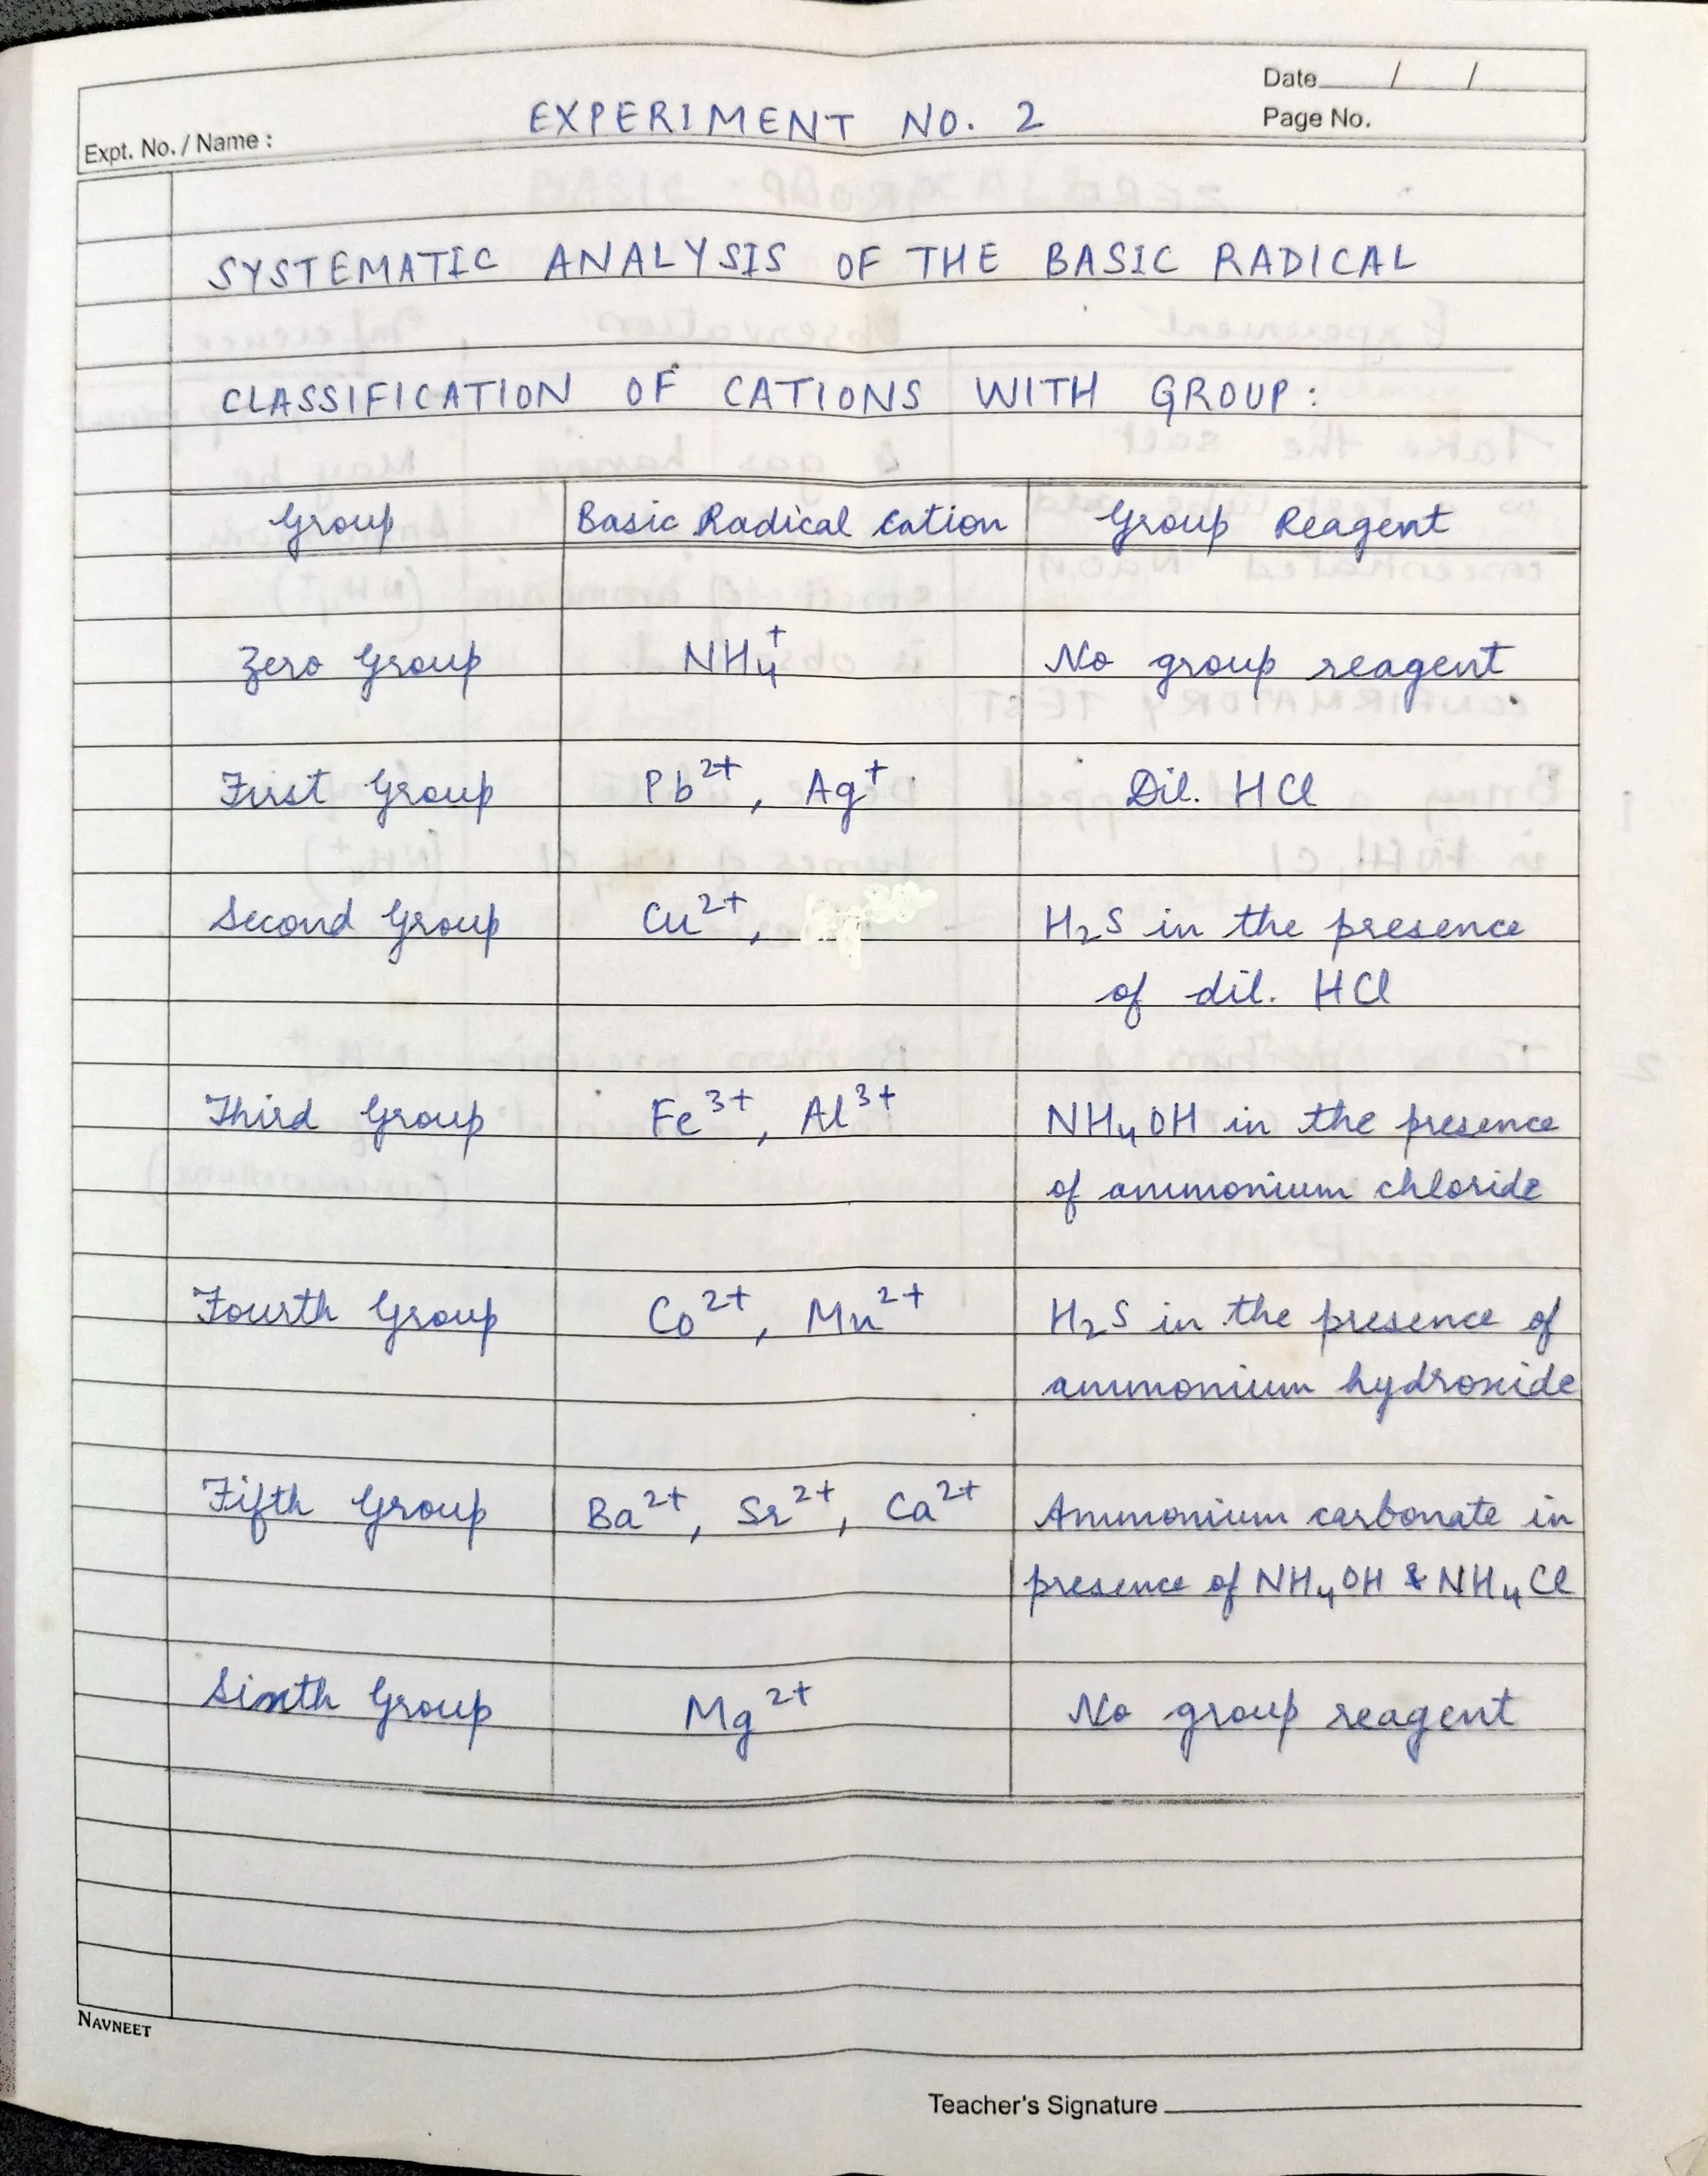 Date / /
EXPERIMENT NO. 2
Page No.
Expt. No. / Name :
SYSTEMATIC ANALYSIS OF THE BASIC RADICAL
CLASSIFICATION OF CATIONS WITH GROUP :
Group Basic Radical Cation Group Reagent
Zero Group NH₄⁺ No group reagent
First Group Pb²⁺, Ag⁺ Dil. HCl
Second Group Cu²⁺, H₂S in the presence
of dil. HCl
Third Group Fe³⁺, Al³⁺ NH₄OH in the presence
of ammonium chloride
Fourth Group Co²⁺, Mn²⁺ H₂S in the presence of
ammonium hydroxide
Fifth Group Ba²⁺, Sr²⁺, Ca²⁺ Ammonium carbonate in
presence of NH₄OH & NH₄Cl
Sixth Group Mg²⁺ No group reagent
NAVNEET
Teacher's Signature